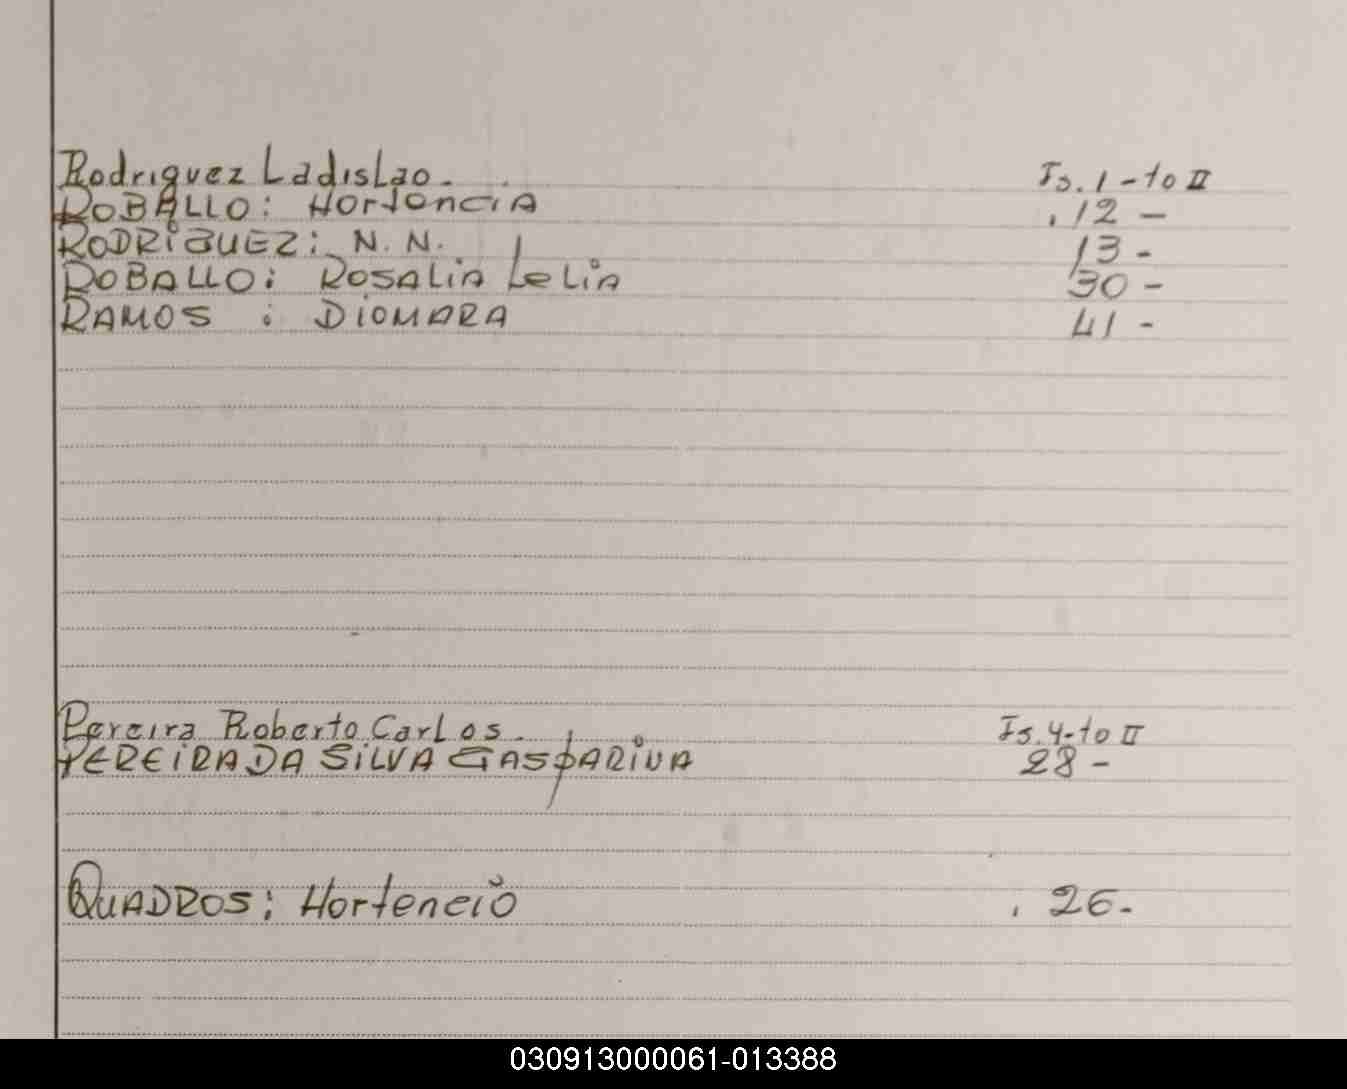 Rodriguez Ladislao. Fs. 1 - to II
ROBALLO: Hortencia . 12 -
RODRIGUEZ: N. N. 13 -
ROBALLO: ROSALIA LeLiA 30 -
RAMOS : DIOMARA 41 -
Pereira Roberto Carlos. Fs. 4 - to II
PEREIRA DA SiLVA GASPARiNA 28 -
QUADROS: Hortencio . 26 -
030913000061-013388